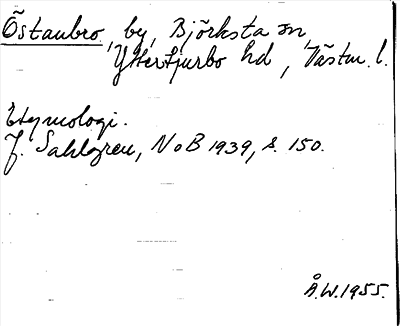 Östanbro, by, Björksta sn
Yttertjurbo hd, Västm. l.
Etymologi.
J. Sahlgren, NoB 1939, s. 150.
Å.W. 1955.